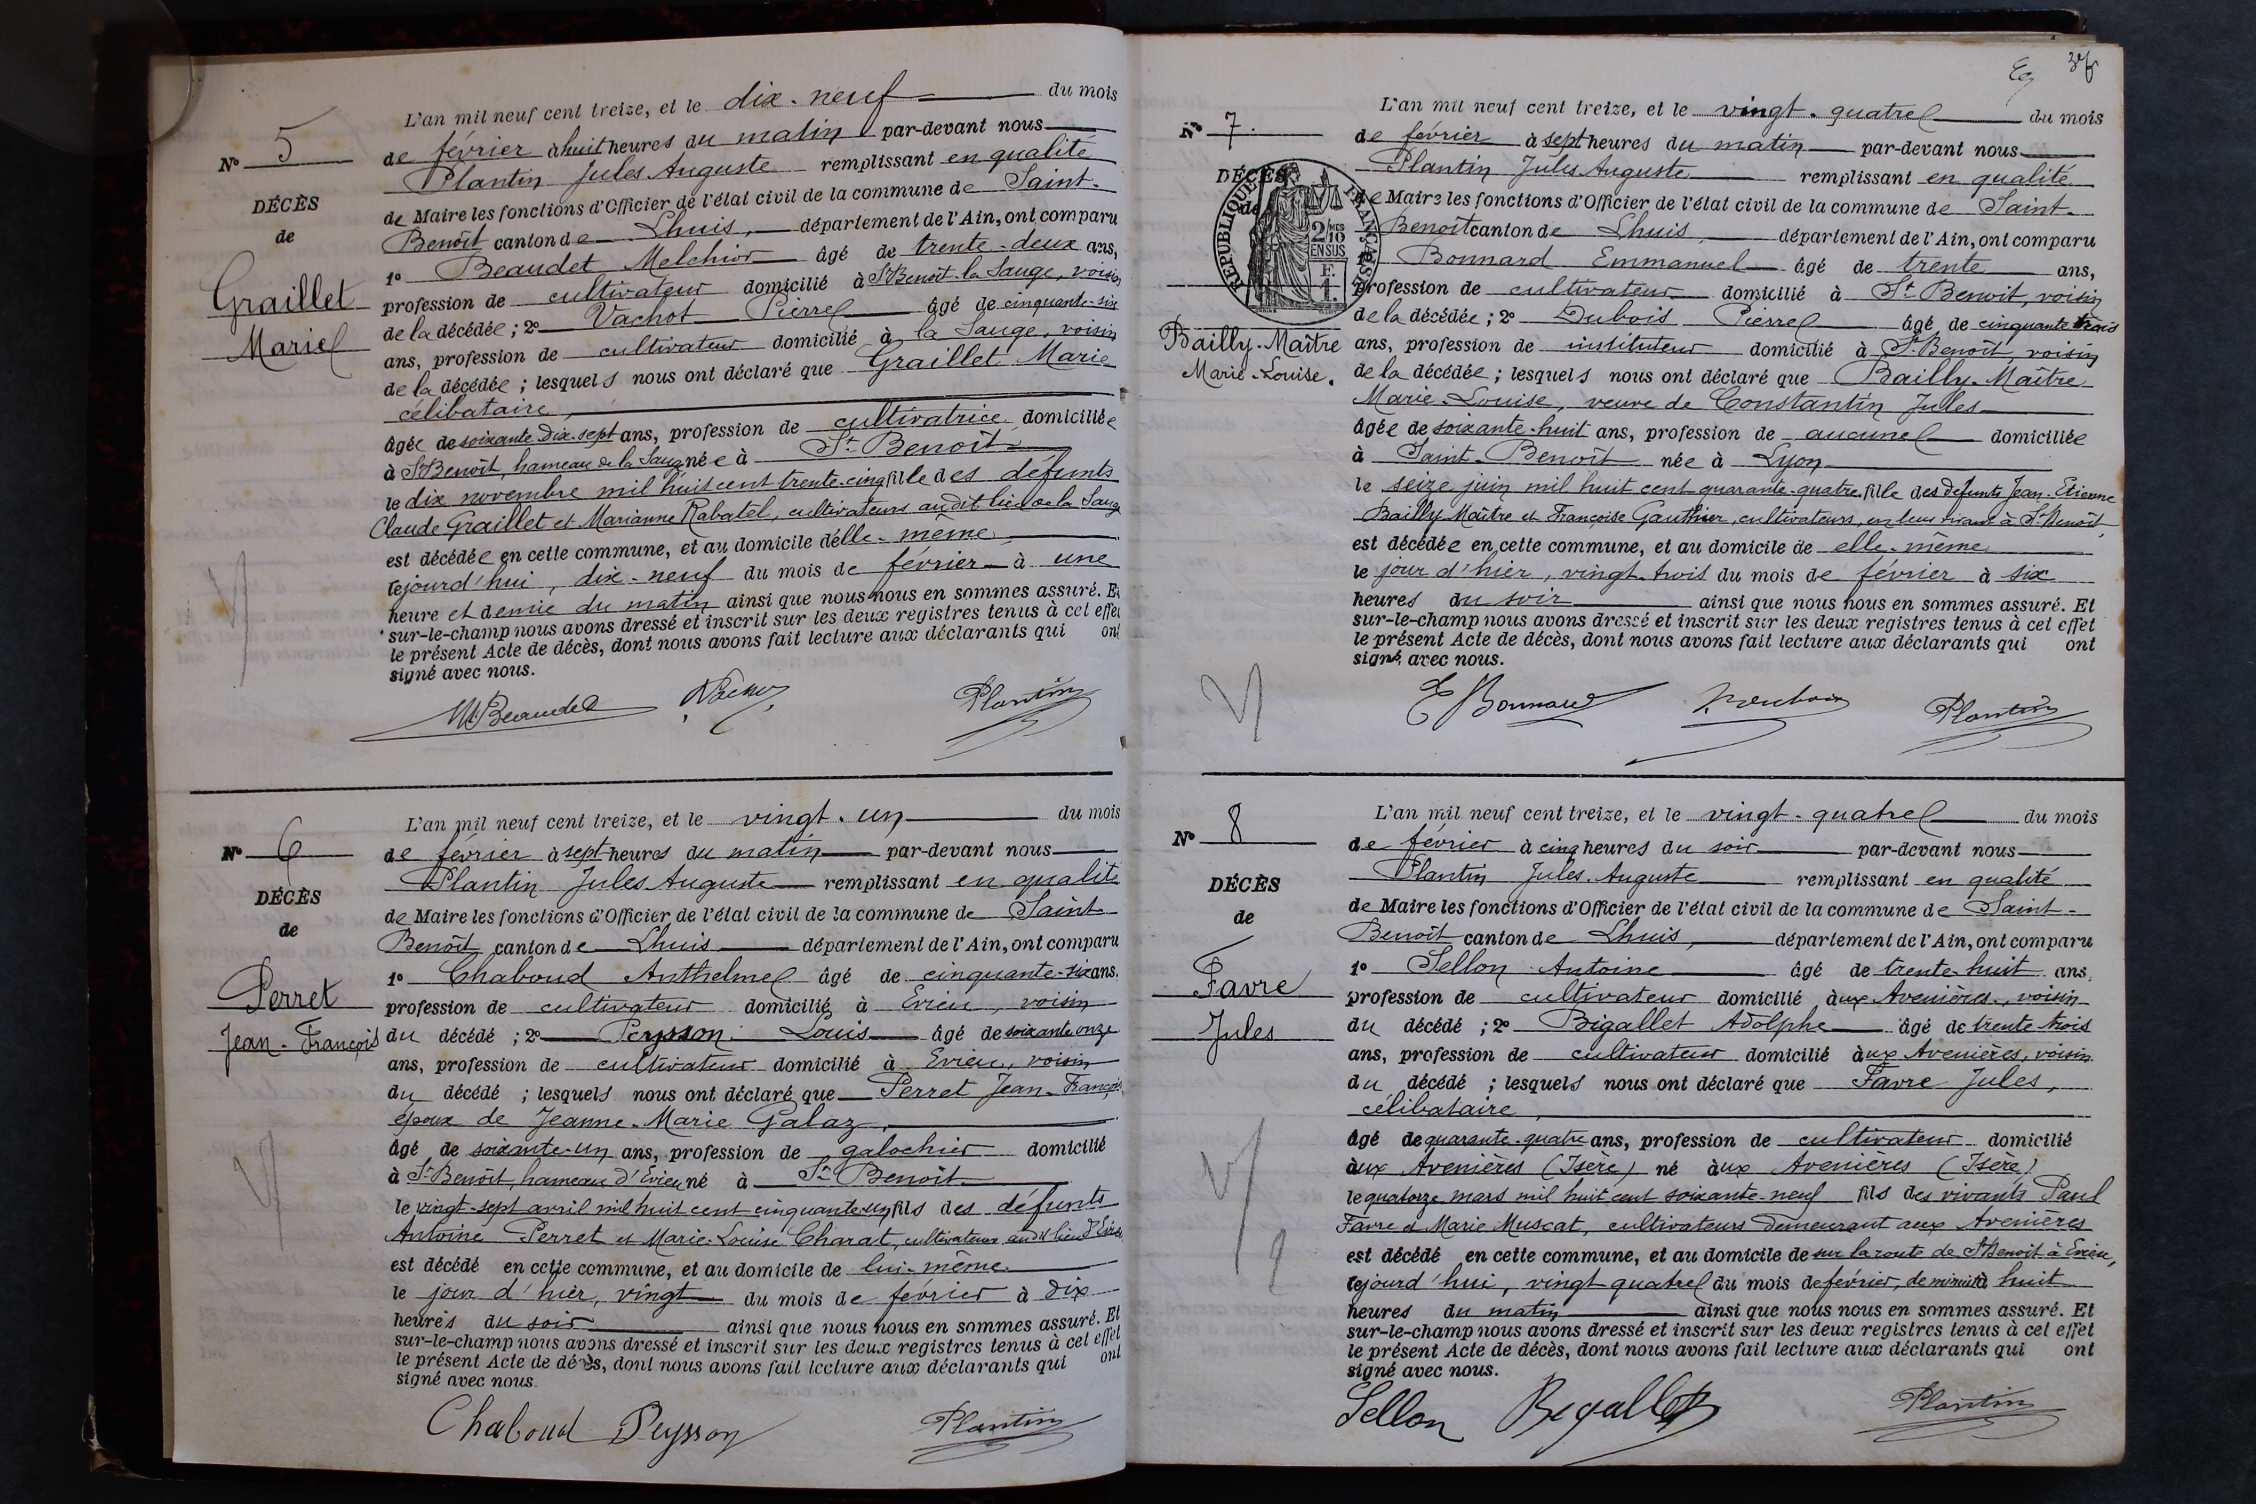 L'an mil neuf cent treize, et le dix-neuf du mois
de février à huit heures du matin par-devant nous
Nº 5
Plantin Jules Auguste remplissant en qualité
DÉCÈS
de Maire les fonctions d'Officier de l'état civil de la commune de Saint-
de
Benoît canton de Lhuis, département de l'Ain, ont comparu
1º Beaudet Melchior âgé de trente-deux ans,
Graillet
profession de cultivateur domicilié à St Benoît la Sauge, voisin
de la décédée ; 2º Vachot Pierre âgé de cinquante-six
Marie
ans, profession de cultivateur domicilié à la Sauge, voisin
de la décédée ; lesquels nous ont déclaré que Graillet Marie
célibataire,
âgée de soixante dix-sept ans, profession de cultivatrice domiciliée
à St Benoît, hameau de la Sauge née à St Benoît
le dix novembre mil huit cent trente-cinq fille des défunts
Claude Graillet et Marianne Rabatel, cultivateurs audit lieu de la Sauge
est décédée en cette commune, et au domicile d'elle-même
lejourd'hui, dix-neuf du mois de février à une
heure et demie du matin ainsi que nous nous en sommes assuré. Et
sur-le-champ nous avons dressé et inscrit sur les deux registres tenus à cet effet
le présent Acte de décès, dont nous avons fait lecture aux déclarants qui ont
signé avec nous.
M Beaudet Plantin
L'an mil neuf cent treize, et le vingt-un du mois
Nº 6
de février à sept heures du matin par-devant nous
Plantin Jules Auguste remplissant en qualité
DÉCÈS
de Maire les fonctions d'Officier de l'état civil de la commune de Saint-
de
Benoît canton de Lhuis département de l'Ain, ont comparu
1º Chaboud Anthelme âgé de cinquante-six ans.
Perret
profession de cultivateur domicilié à Evieu, voisin
Jean-François
du décédé ; 2º Peysson Louis âgé de soixante onze
ans, profession de cultivateur domicilié à Evieu, voisin
du décédé ; lesquels nous ont déclaré que Perret Jean-François
époux de Jeanne-Marie Galaz,
âgé de soixante-un ans, profession de galochier domicilié
à St Benoît, hameau d'Evieu né à St Benoît
le vingt-sept avril mil huit cent cinquante-un fils des défunts
Antoine Perret et Marie-Louise Charat, cultivateurs audit lieu d'Evieu
est décédé en cette commune, et au domicile de lui-même
le jour d'hier, vingt du mois de février à dix
heures du soir ainsi que nous nous en sommes assuré. Et
sur-le-champ nous avons dressé et inscrit sur les deux registres tenus à cet effet
le présent Acte de décès, dont nous avons fait lecture aux déclarants qui ont
signé avec nous.
Chaboud Peysson Plantin
L'an mil neuf cent treize, et le vingt-quatre du mois
Nº 7.
de février à sept heures du matin par-devant nous
Plantin Jules Auguste remplissant en qualité
DÉCÈS
de Maire les fonctions d'Officier de l'état civil de la commune de Saint-
de
RÉPUBLIQUE FRANÇAISE
2/10
EN SUS
Benoît canton de Lhuis, département de l'Ain, ont comparu
1º Bonnard Emmanuel âgé de trente ans,
profession de cultivateur domicilié à St Benoît, voisin
de la décédée ; 2º Dubois Pierre âgé de cinquante trois
Bailly-Maître
ans, profession de instituteur domicilié à St Benoît, voisin
Marie-Louise.
de la décédée ; lesquels nous ont déclaré que Bailly-Maître
Marie-Louise, veuve de Constantin Jules
âgée de soixante-huit ans, profession de aucune domiciliée
à Saint-Benoît née à Lyon
le seize juin mil huit cent quarante-quatre fille des défunts Jean-Etienne
Bailly Maître et Françoise Gauthier, cultivateurs, en leur vivant à St Benoît,
est décédée en cette commune, et au domicile de elle-même
le jour d'hier, vingt-trois du mois de février à six
heures du soir ainsi que nous nous en sommes assuré. Et
sur-le-champ nous avons dressé et inscrit sur les deux registres tenus à cet effet
le présent Acte de décès, dont nous avons fait lecture aux déclarants qui ont
signé avec nous.
E Bonnard Plantin
L'an mil neuf cent treize, et le vingt-quatre du mois
Nº 8
de février à cinq heures du soir par-devant nous
Plantin Jules Auguste remplissant en qualité
DÉCÈS
de Maire les fonctions d'Officier de l'état civil de la commune de Saint-
de
Benoît canton de Lhuis, département de l'Ain, ont comparu
1º Sellon Antoine âgé de trente-huit ans,
Favre
profession de cultivateur domicilié aux Avenières, voisin
Jules
du décédé ; 2º Bigallet Adolphe âgé de trente trois
ans, profession de cultivateur domicilié aux Avenières, voisin
du décédé ; lesquels nous ont déclaré que Favre Jules,
célibataire,
âgé de quarante-quatre ans, profession de cultivateur domicilié
aux Avenières (Isère) né aux Avenières (Isère)
le quatorze mars mil huit cent soixante-neuf fils des vivants Paul
Favre et Marie Muscat, cultivateurs demeurant aux Avenières
est décédé en cette commune, et au domicile de sur la route de St Benoît à Evieu,
lejourd'hui, vingt quatre du mois de février, de minuit à huit
heures du matin ainsi que nous nous en sommes assuré. Et
sur-le-champ nous avons dressé et inscrit sur les deux registres tenus à cet effet
le présent Acte de décès, dont nous avons fait lecture aux déclarants qui ont
signé avec nous.
Sellon Bigallet Plantin